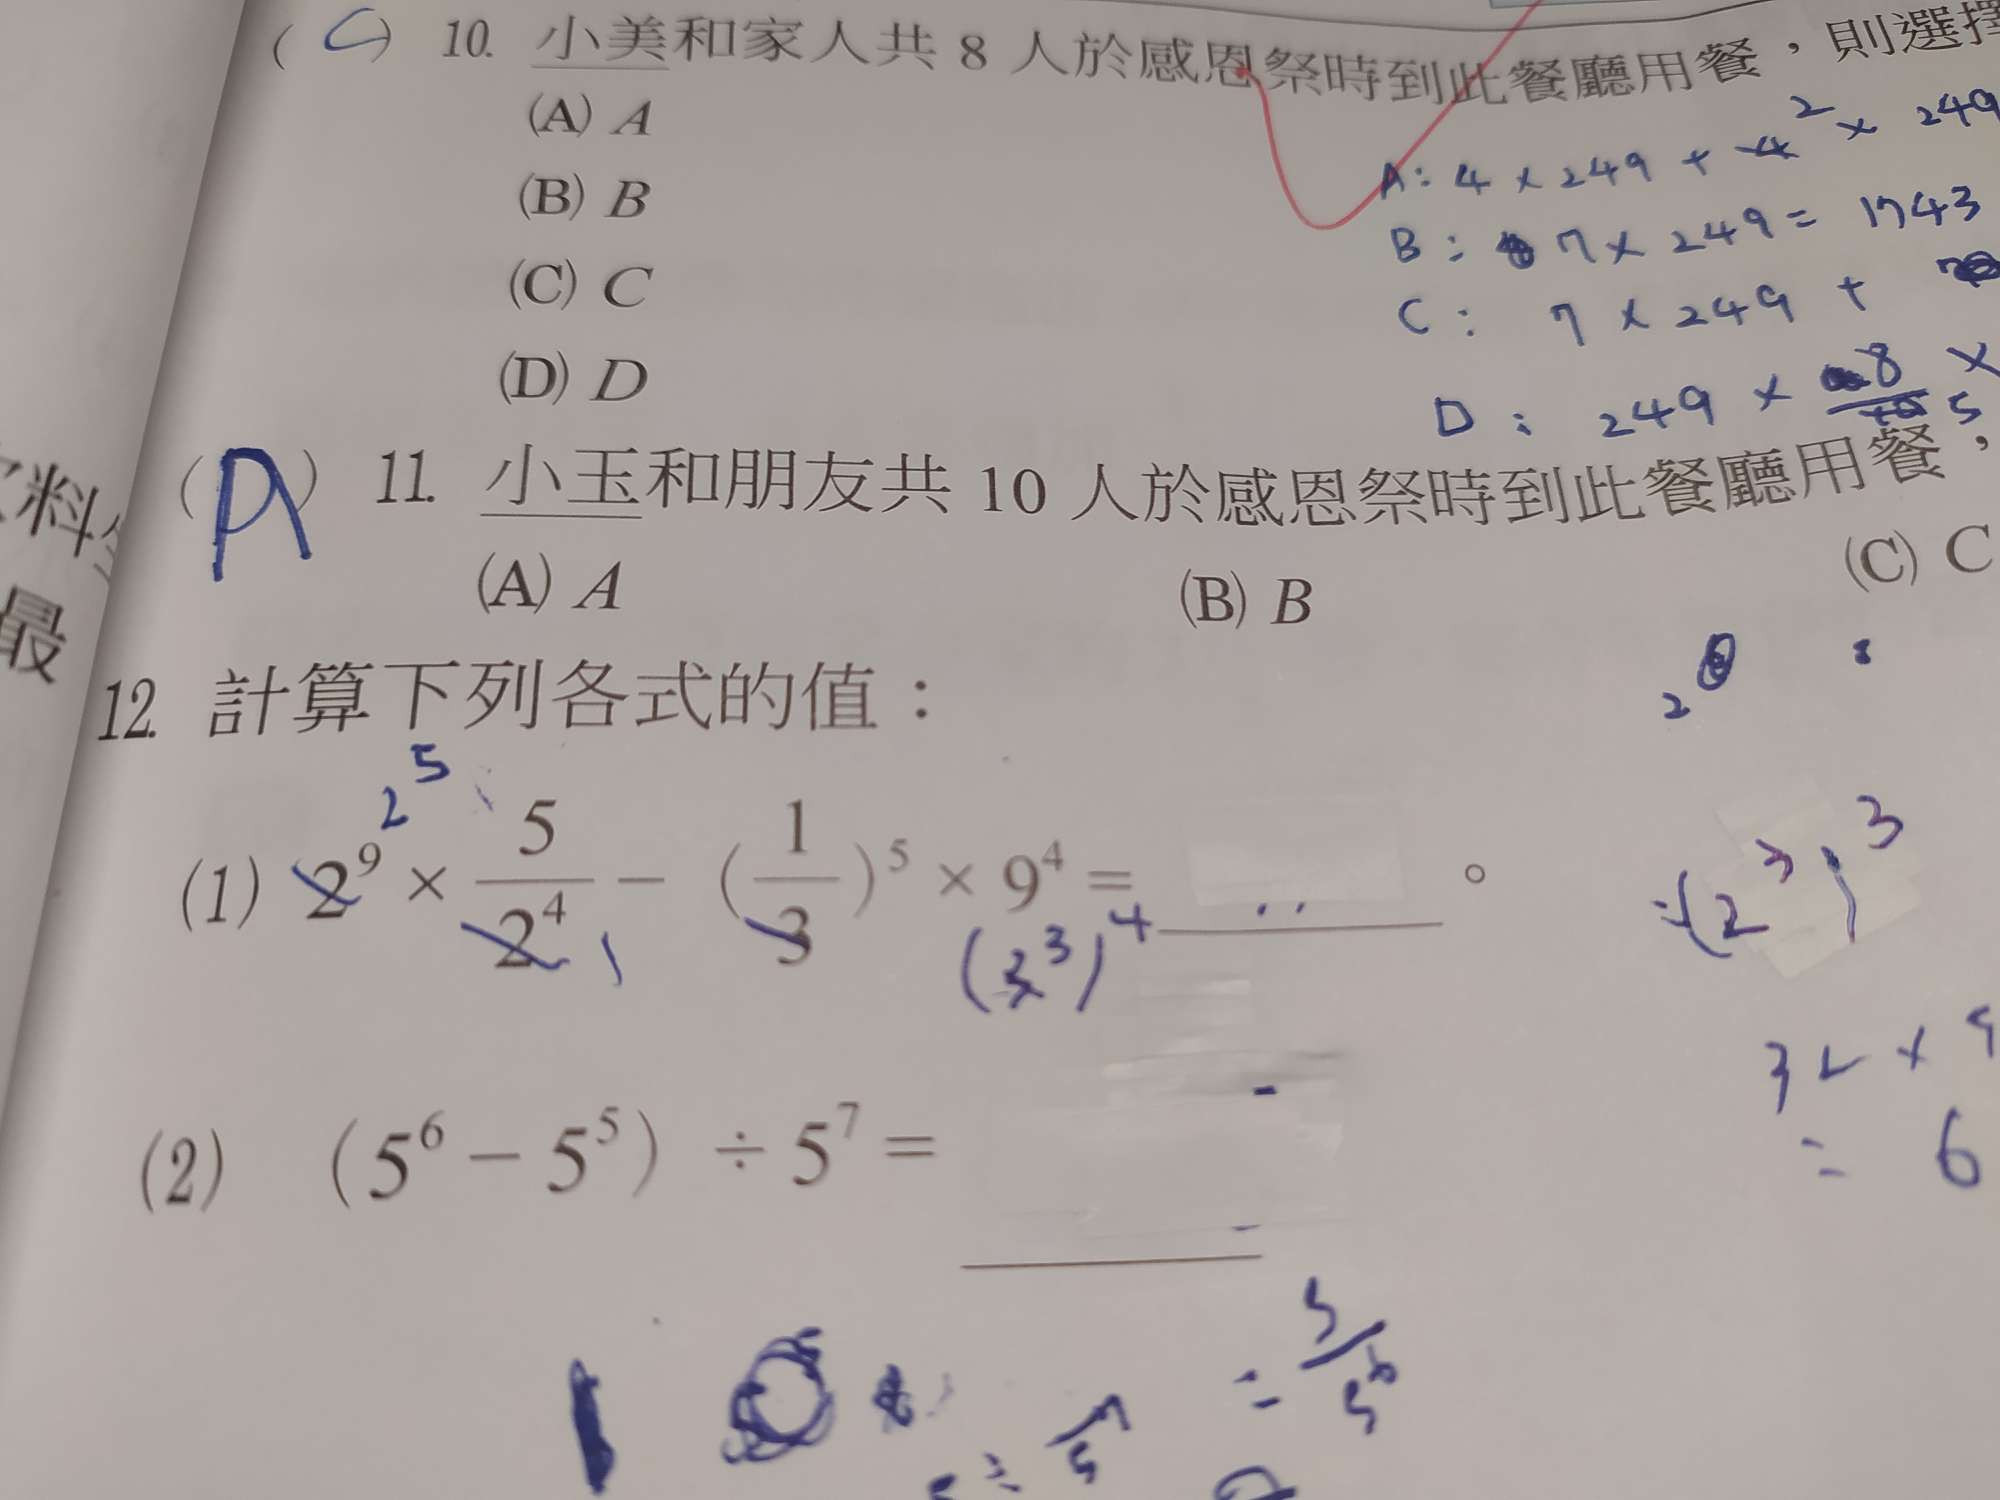 ( C ) 10. 小美和家人共 8 人於感恩祭時到此餐廳用餐,則選擇
(A) A
(B) B
(C) C
(D) D
A: 4 × 249 + 4 2 × 249
B: 7 × 249 = 1743
C: 7 × 249 +
D: 249 × 8 ×
(A) 11. 小玉和朋友共 10 人於感恩祭時到此餐廳用餐,
(A) A (B) B (C) C
12. 計算下列各式的值:
2^5
(1) 2^9 × 5/2^4 - (1/3)^5 × 9^4 = 。
(3^3)^4
=(2^3)^3
32 × 9
= 6
(2) (5^6 - 5^5) ÷ 5^7 =
= 5/5^6
最